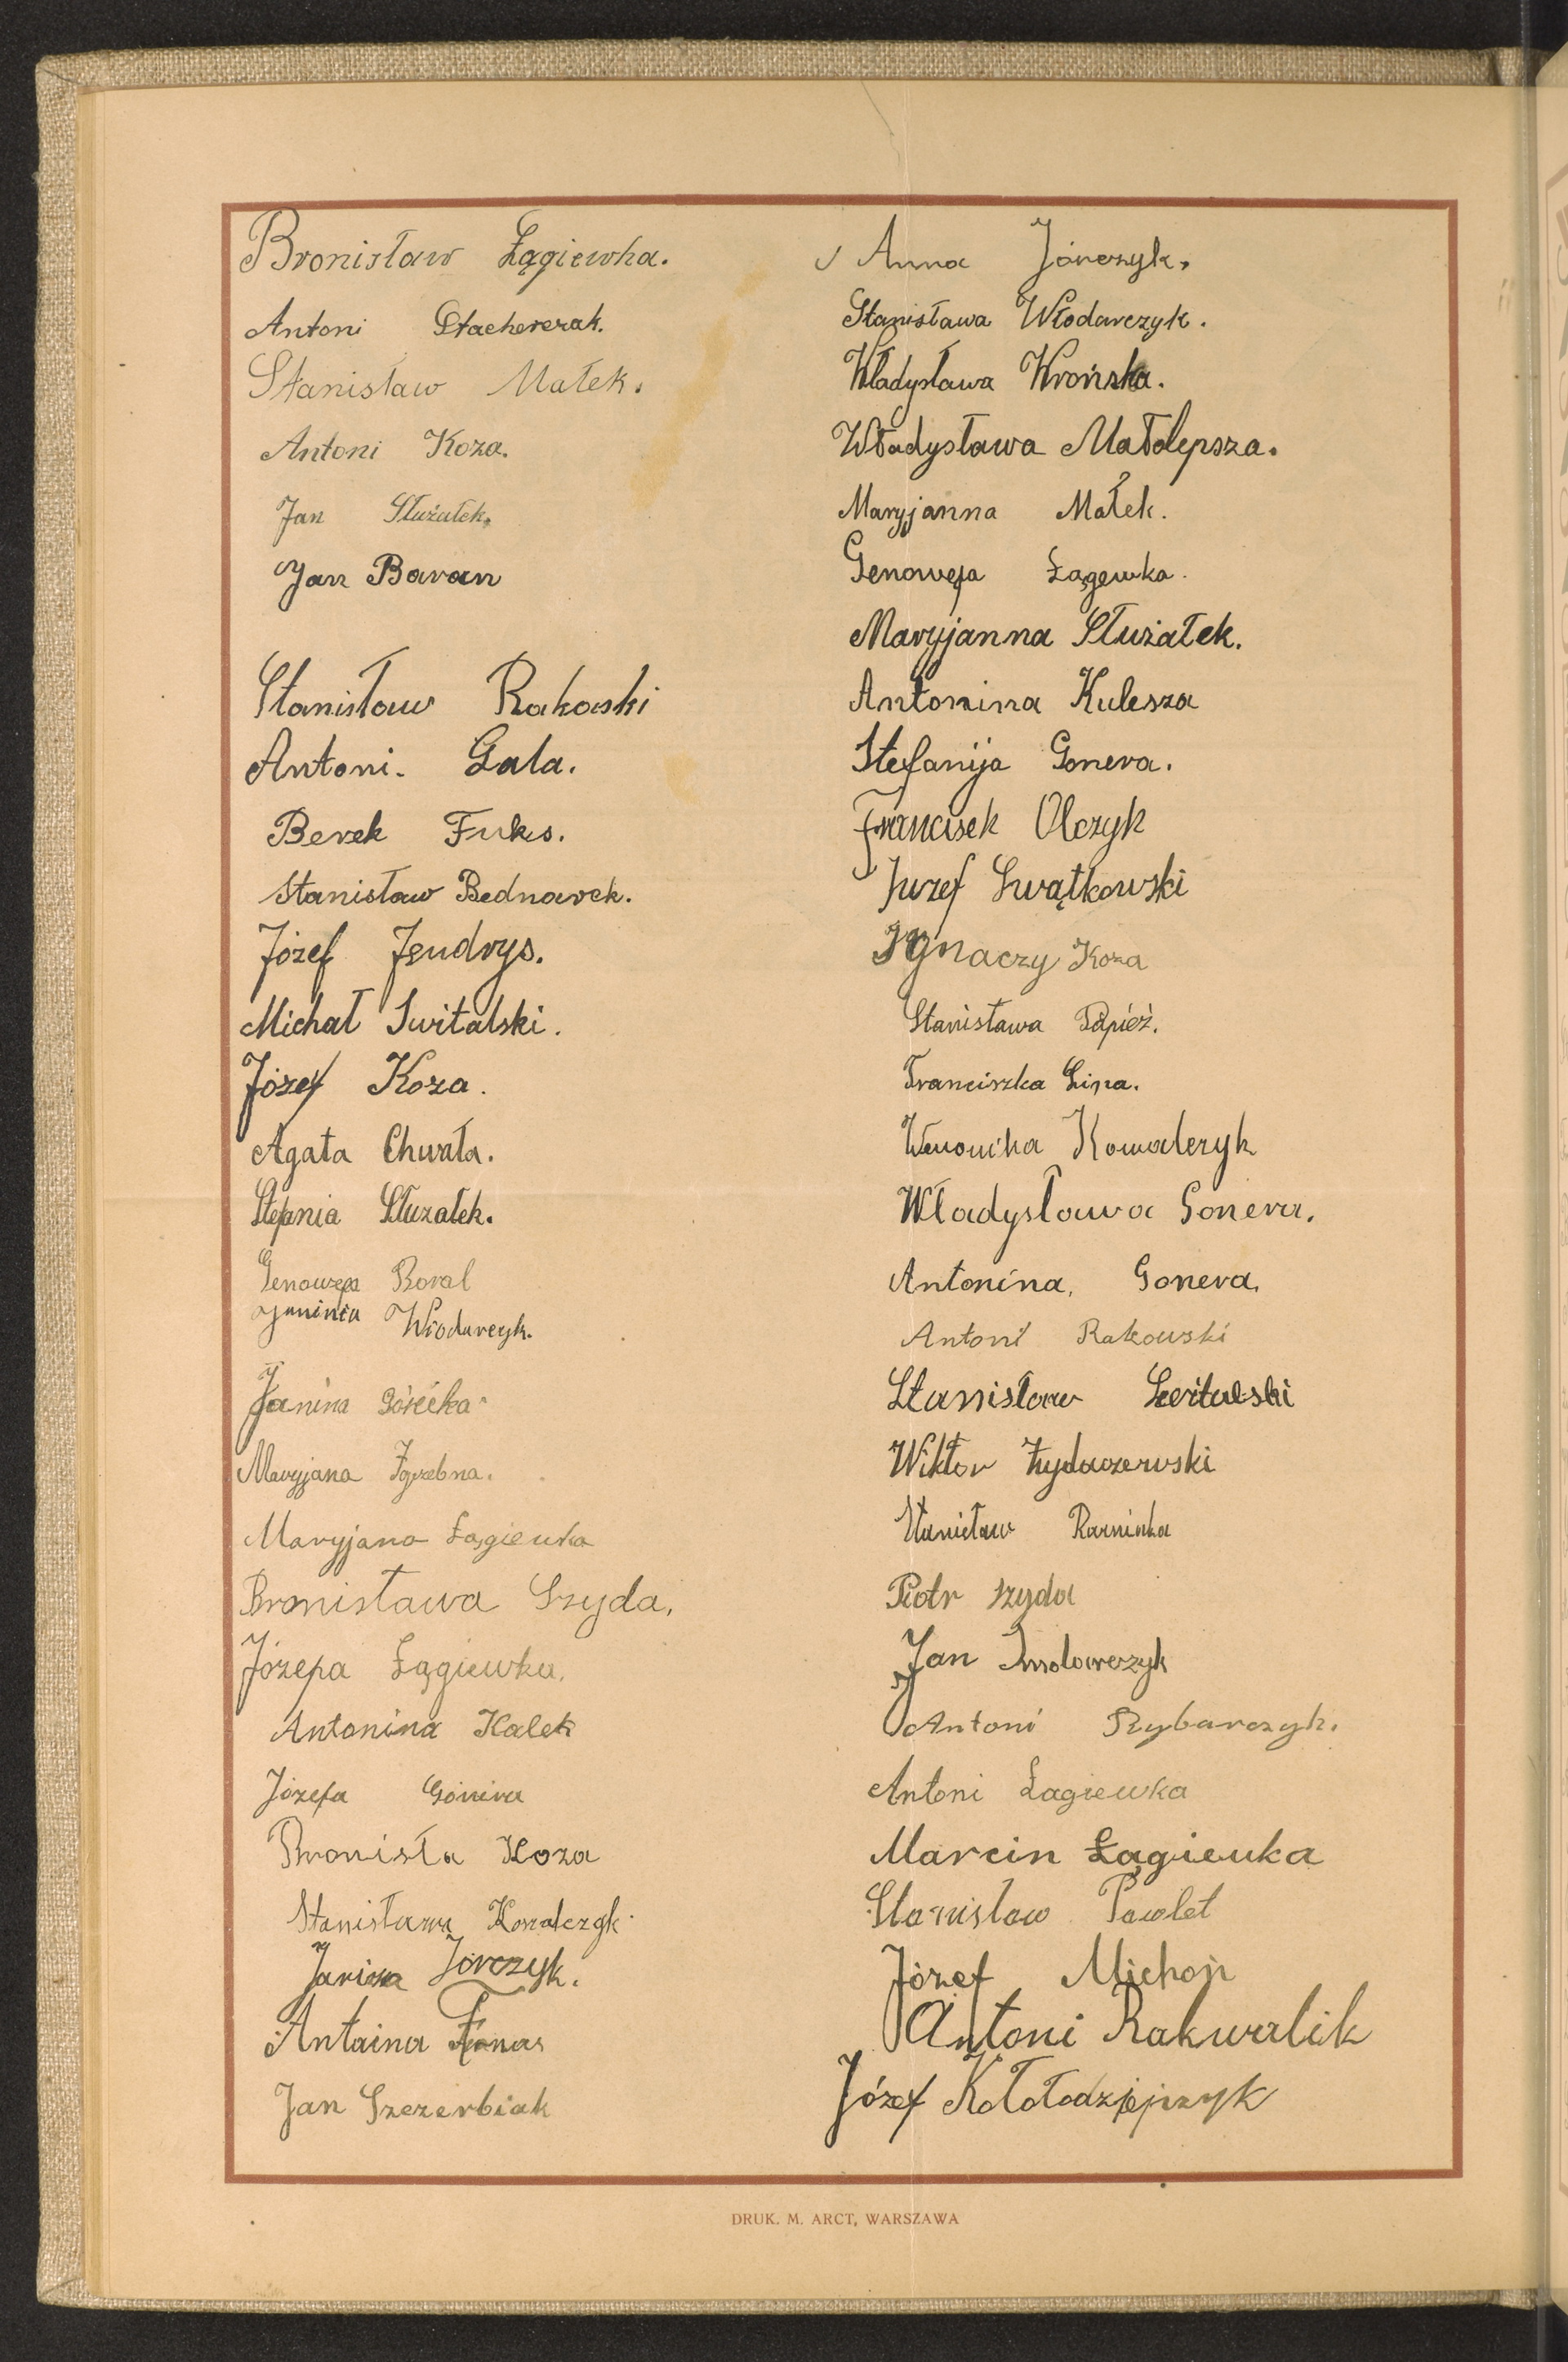 Bronisław Łągiewka.
Antoni Stachererak.
Stanisław Małek.
Antoni Koza.
Jan Służałek.
Jan Baran
Stanisław Rakowski
Antoni. Gala.
Berek Fuks.
Stanisław Bednarek.
Józef Jendrys.
Michał Switalski.
Józef Koza.
Agata Chwała.
Stefania Służałek.
Genowefa Boral
Janinia Włodarczyk.
Janina Górecka
Maryjana Zgrzebna.
Maryjana Łągiewka
Bronisława Szyda,
Józefa Łągiewka,
Antonina Kalek
Józefa Gonera
Bronisła Koza
Stanisława Kowalczyk
Janina Jórczyk.
Antaina
Jan Szczerbiak
Anna Jórczyk,
Stanisława Włodarczyk.
Władysława Wrońska.
Władysława Małolepsza.
Maryjanna Małek.
Genowefa Łągewka.
Maryjanna Służałek.
Antonina Kulesza
Stefanija Gonera.
Francisek Olczyk
Juzef Swątkowski
Ignaczy Koza
Stanisława Papież.
Franciszka Lipa.
Weronika Kowalczyk
Władysława Gonera.
Antonina, Gonera,
Antoni Rakowski
Stanisław Switalski
Wiktor Żydaczewski
Stanisław
Piotr szyda
Jan
Antoni Rybarczyk.
Antoni Łagiewka
Marcin Łągieuka
Stanisław Pawlet
Józef Michoń
Antoni Rakwalik
Józef Kołołodziejczyk
DRUK. M. ARCT, WARSZAWA